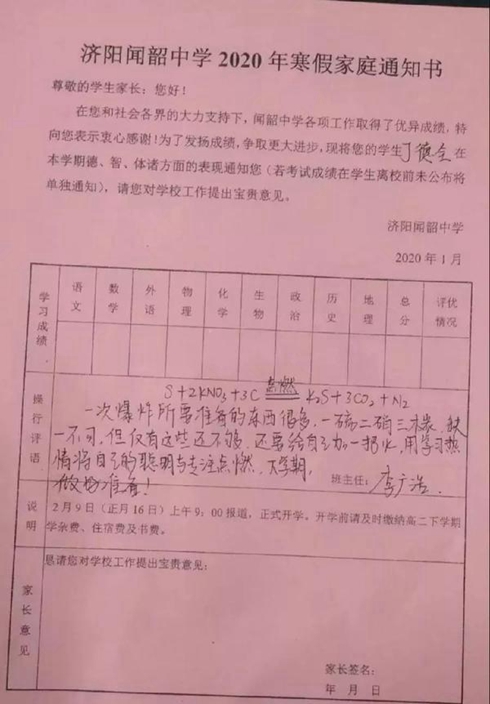 济阳闻韶中学 2020 年寒假家庭通知书
尊敬的学生家长：您好！
在您和社会各界的大力支持下，闻韶中学各项工作取得了优异成绩，特
向您表示衷心感谢！为了发扬成绩，争取更大进步，现将您的学生丁德全在
本学期德、智、体诸方面的表现通知您（若考试成绩在学生离校前未公布将
单独通知），请您对学校工作提出宝贵意见。
济阳闻韶中学
2020 年 1 月
学习成绩 语文 数学 外语 物理 化学 生物 政治 历史 地理 总分 评优情况
操行评语
S+2KNO₃+3C 点燃 K₂S+3CO₂+N₂
一次爆炸所要准备的东西很多，一硫二硝三木炭，缺
一不可，但仅有这些还不够，还要给自己加一把火，用学习热
情将自己的聪明与专注点燃，下学期，
做好准备！
班主任：李广浩
说明
2 月 9 日（正月 16 日）上午 9：00 报道，正式开学。开学前请及时缴纳高二下学期
学杂费、住宿费及书费。
家长意见
恳请您对学校工作提出宝贵意见：
家长签名：
年 月 日